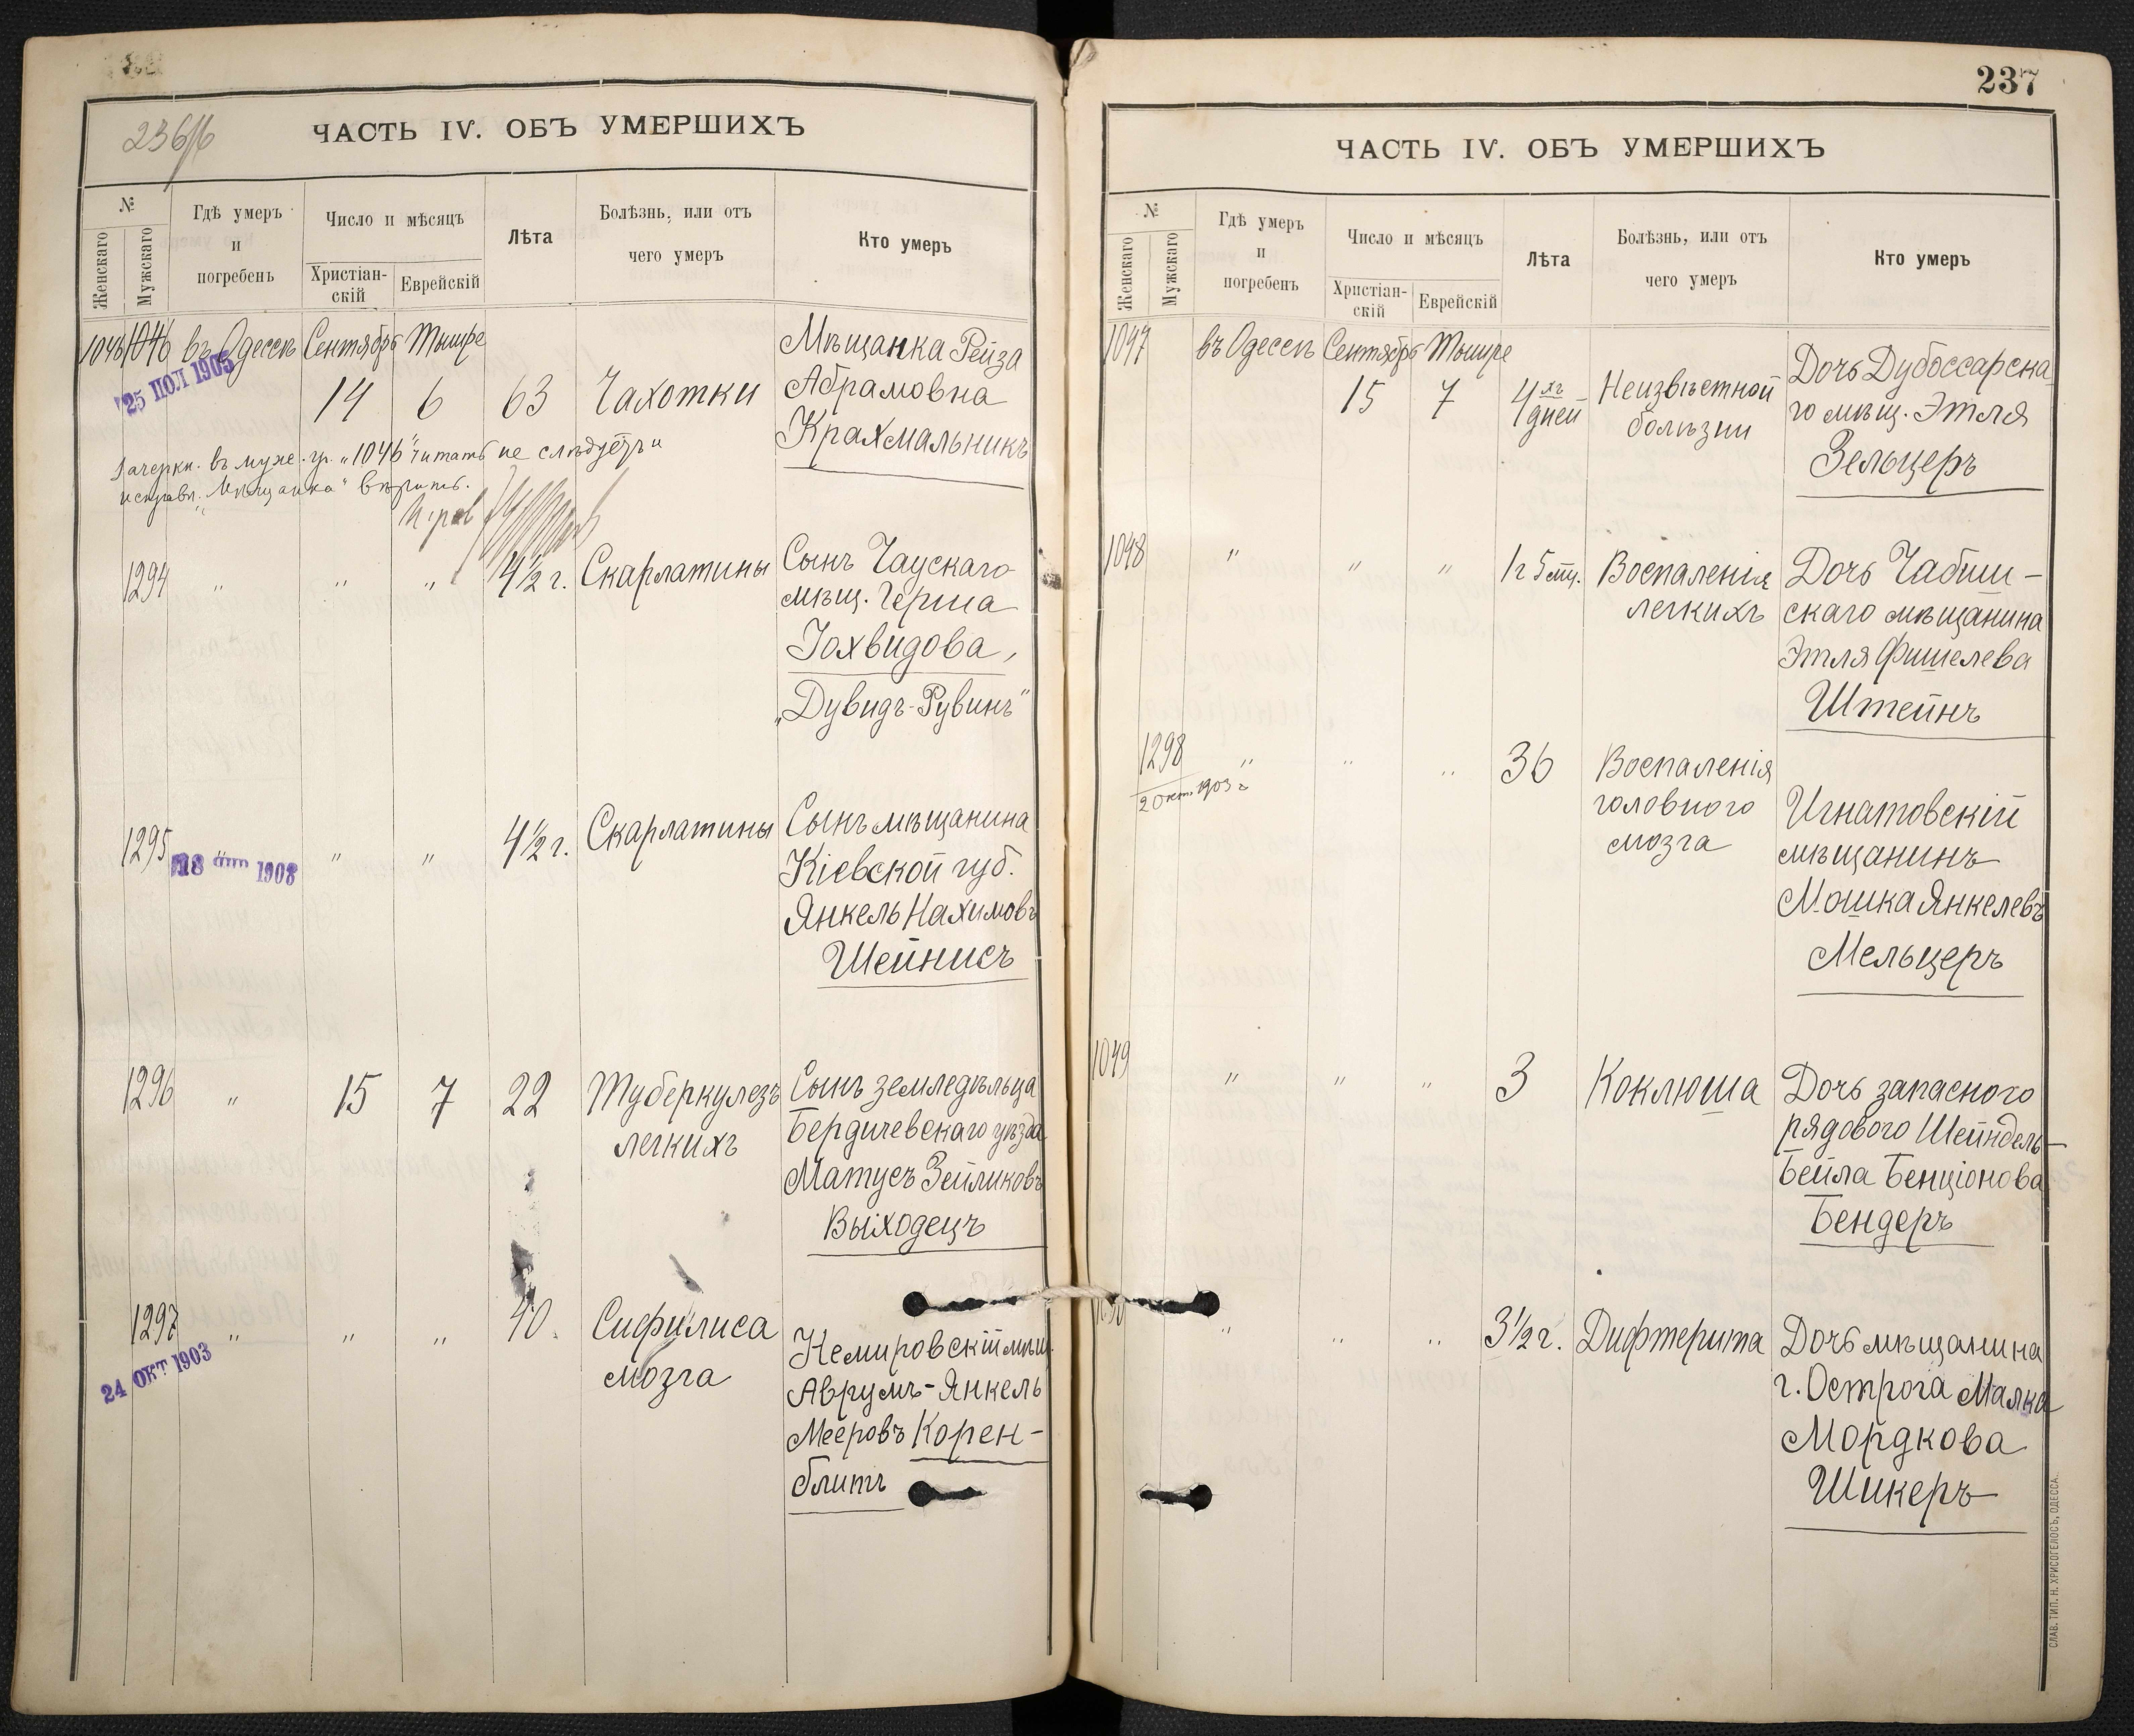 236/б
ЧАСТЬ IV. ОБЪ УМЕРШИХЪ
№
Женскаго
Мужскаго
Гдѣ умеръ
и
погребенъ
Число и мѣсяцъ
Христіан-
скій
Еврейскій
Лѣта
Болѣзнь, или отъ
чего умеръ
Кто умеръ
1046 1046 въ Одессѣ Сентябрь Тишре
25 ИЮЛ 1905
14 6 63 Чахотки
Мѣщанка Рейза
Абрамовна
Крахмальникъ
Зачеркн. въ муж. гр. „1046“ читать не слѣдуетъ и
исправл. „Мѣщанка“ вѣрить.
1294 " " " 4½ г. Скарлатины
Сынъ Чаускаго
мѣщ. Герша
Іохвидова,
„Дувидъ-Рувинъ“
1295 " " " 4½ г. Скарлатины
1908
Сынъ мѣщанина
Кіевской губ.
Янкель Нахимовъ
Шейнисъ
1296 " 15 7 22 Туберкулезъ
легкихъ
Сынъ земледѣльца
Бердичевскаго уѣзда
Матусъ Зейликовъ
Выходецъ
1297 " " " 40. Сифилиса
мозга
24 ОКТ 1903
Немировскій мѣщ.
Аврумъ-Янкель
Мееровъ Корен-
блитъ
237
ЧАСТЬ IV. ОБЪ УМЕРШИХЪ
№
Женскаго
Мужскаго
Гдѣ умеръ
и
погребенъ
Число и мѣсяцъ
Христіан-
скій
Еврейскій
Лѣта
Болѣзнь, или отъ
чего умеръ
Кто умеръ
1047 въ Одессѣ Сентябрь Тишре
15 7 4хъ
дней
Неизвѣстной
болѣзни
Дочь Дубоссарска-
го мѣщ. Этля
Зельцеръ
1048 " " " 1 г 5 мц. Воспаленія
легкихъ
Дочь Чабши-
скаго мѣщанина
Этля Фишелева
Штейнъ
1298 " " " 36 Воспаленія
головного
мозга
2 окт. 1903 г.
Игнатовскій
мѣщанинъ
Мошка Янкелевъ
Мельцеръ
1049 " " " 3 Коклюша
Дочь запасного
рядового Шейндель-
Бейла Бенціонова
Бендеръ
" " " 3½ г. Дифтерита
Дочь мѣщанина
г. Острога Малка
Мордкова
Шикеръ
СЛАВ. ТИП. Н. ХРИСОГЕЛОСЪ, ОДЕССА.